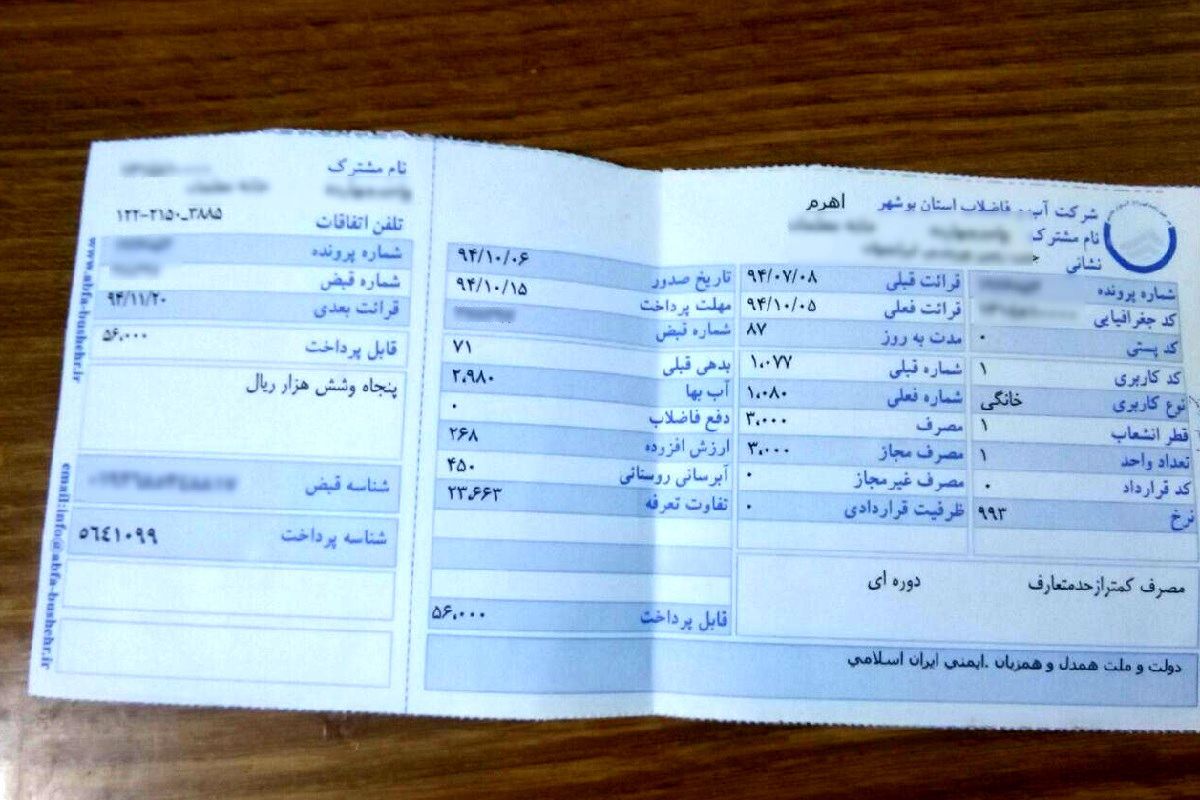 شرکت آب و فاضلاب استان بوشهر اهرم
نام مشترک
نشانی
شماره پرونده
کد جغرافیایی
کد پستی ۰
کد کاربری ۱
نوع کاربری خانگی
قطر انشعاب ۱
تعداد واحد ۱
کد قرارداد ۰
نرخ ۹۹۳
قرائت قبلی ۹۴/۰۷/۰۸
قرائت فعلی ۹۴/۱۰/۰۵
مدت به روز ۸۷
شماره قبلی ۱،۰۷۷
شماره فعلی ۱،۰۸۰
مصرف ۳،۰۰۰
مصرف مجاز ۳،۰۰۰
مصرف غیرمجاز ۰
ظرفیت قراردادی ۰
تاریخ صدور ۹۴/۱۰/۰۶
مهلت پرداخت ۹۴/۱۰/۱۵
شماره قبض
بدهی قبلی ۷۱
آب بها ۲،۹۸۰
دفع فاضلاب ۰
ارزش افزوده ۲۶۸
آبرسانی روستائی ۴۵۰
تفاوت تعرفه ۲۳،۶۶۳
قابل پرداخت ۵۶،۰۰۰
مصرف کمترازحدمتعارف دوره ای
دولت و ملت همدل و همزبان .ایمنی ایران اسلامی
نام مشترک
تلفن اتفاقات ۱۲۲-۲۱۵۰_۳۸۸۵
شماره پرونده
شماره قبض
قرائت بعدی ۹۴/۱۱/۲۰
قابل پرداخت ۵۶،۰۰۰
پنجاه وشش هزار ریال
شناسه قبض
شناسه پرداخت ۵۶۴۱۰۹۹
www.abfa-bushehr.ir
email:info@abfa-bushehr.ir